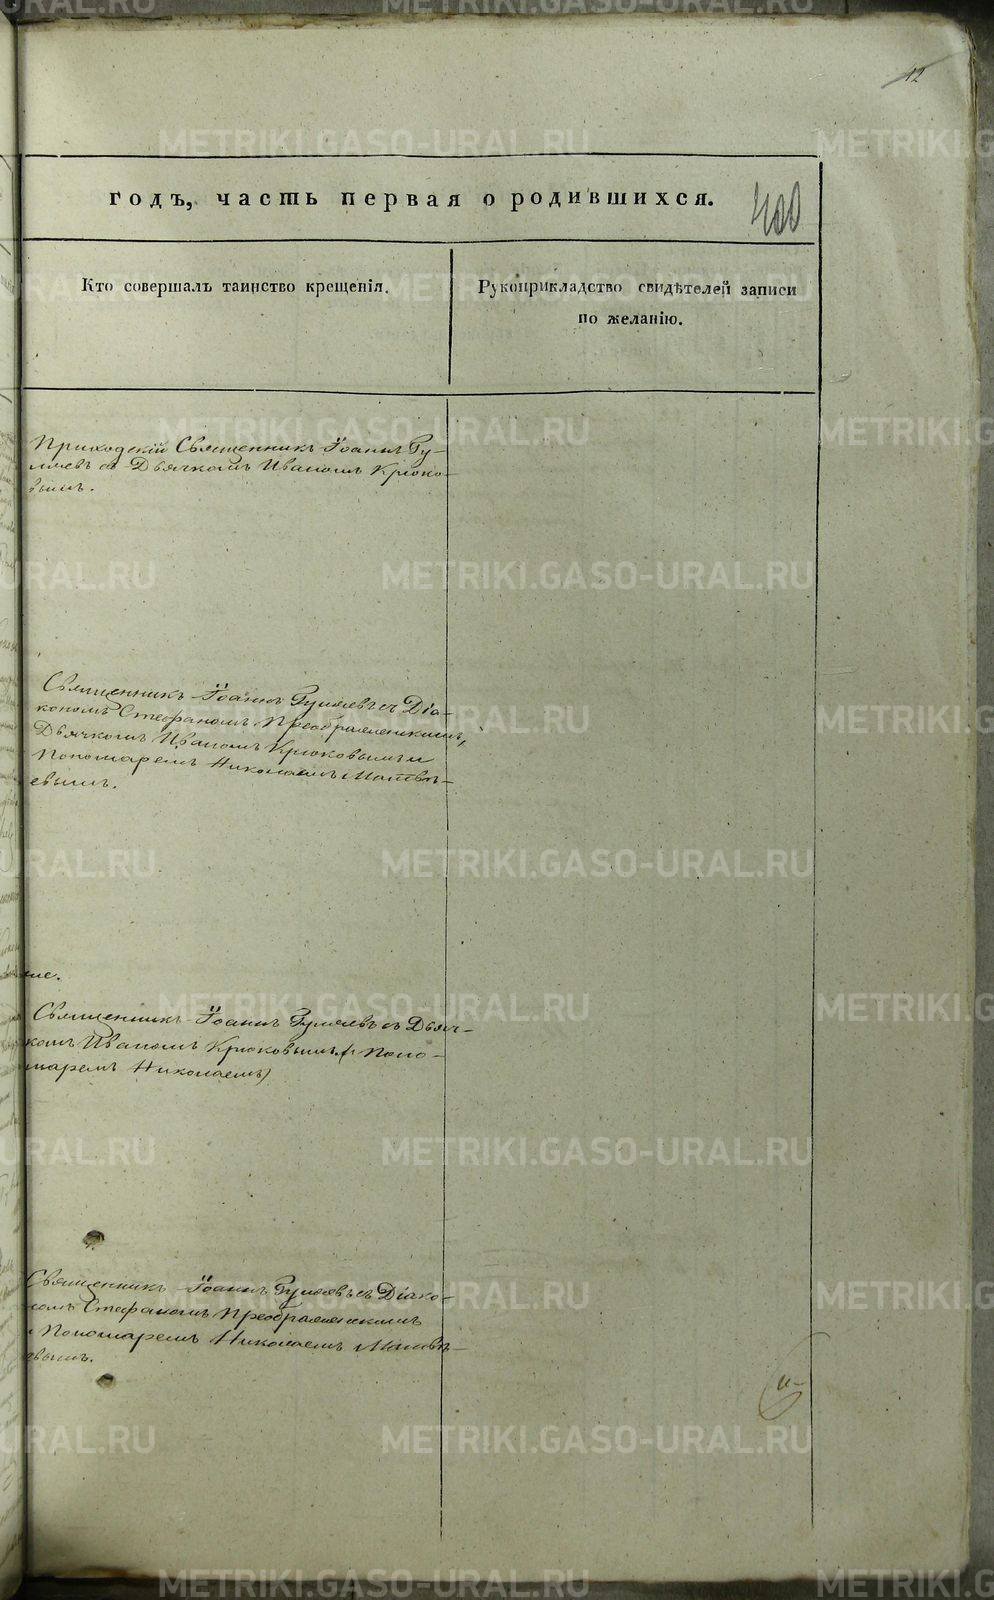 12
годъ, часть первая о родившихся.
400
Кто совершалъ таинство крещенія.
Рукоприкладство свидѣтелей записи
по желанію.
Приходскій Священникъ Іоаннъ Гу-
ляевъ съ Дьячкомъ Иваномъ Крюко-
вымъ.
Священникъ Іоаннъ Гуляевъ съ Діа-
кономъ Стефаномъ Преображенскимъ,
Дьячкомъ Иваномъ Крюковымъ и
Пономаремъ Николаемъ Матвѣ-
евымъ.
Священникъ Іоаннъ Гуляевъ съ Дьяч-
комъ Иваномъ Крюковымъ (и Поно-
маремъ Николаемъ)
Священникъ Іоаннъ Гуляевъ съ Діако-
номъ Стефаномъ Преображенскимъ
и Пономаремъ Николаемъ Матвѣ-
евымъ.
METRIKI.GASO-URAL.RU